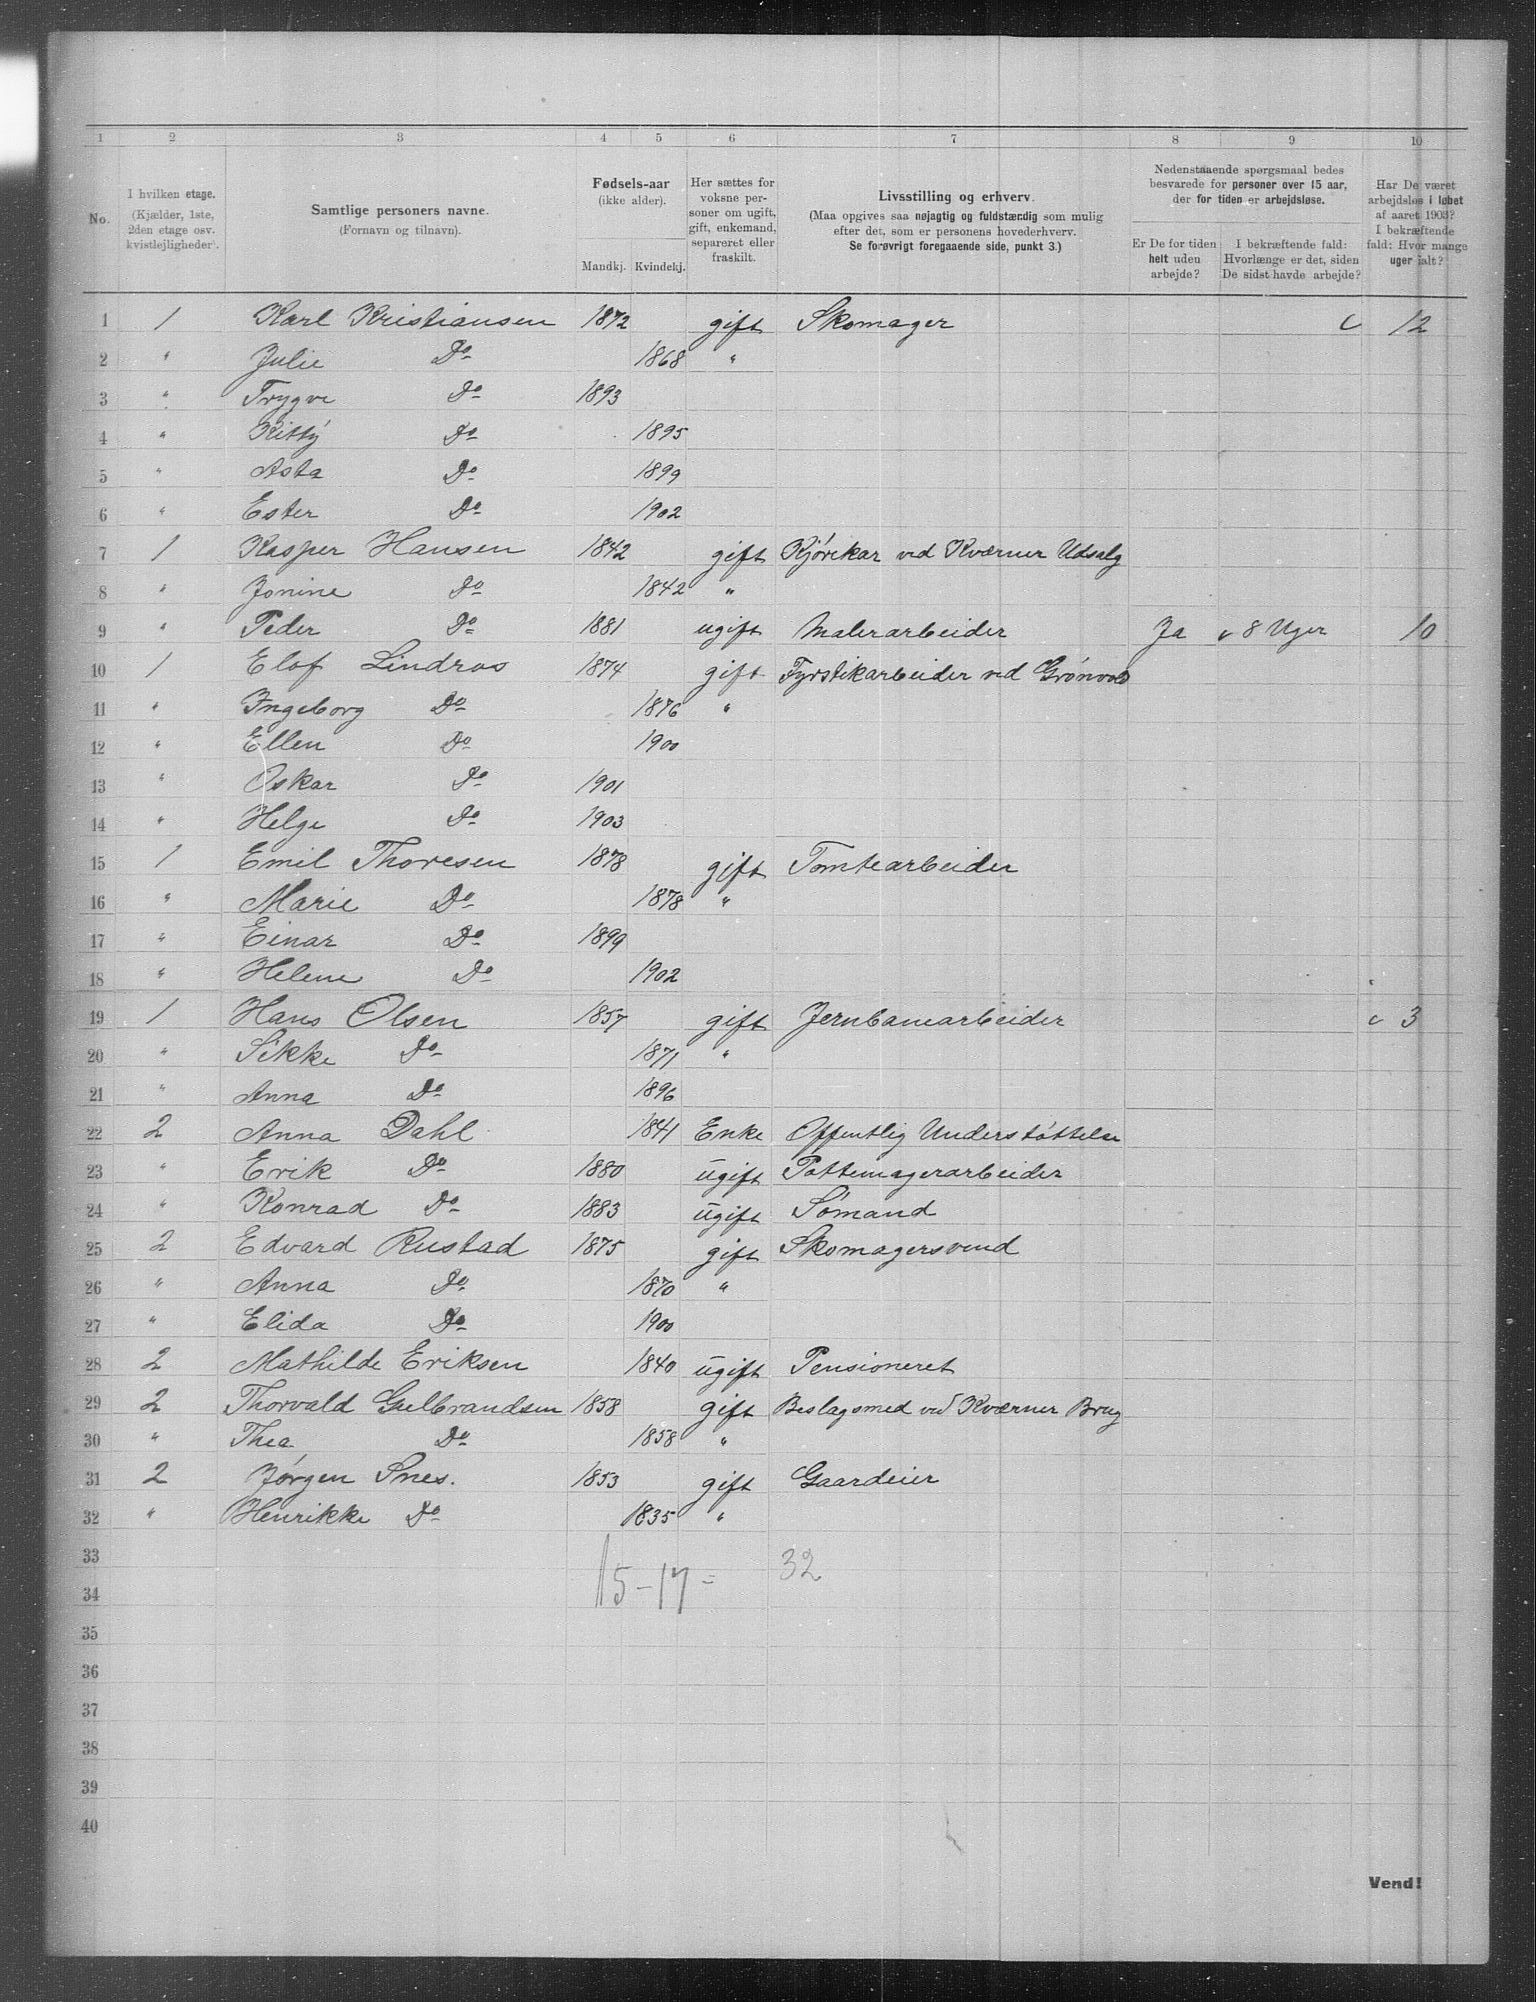 1 2 3 4 5 6 7 8 9 10
No.
I hvilken etage. (Kjælder, 1ste, 2den etage osv. kvistlejligheder).
Samtlige personers navne. (Fornavn og tilnavn).
Fødsels-aar (ikke alder).
Mandkj. Kvindekj.
Her sættes for voksne personer om ugift, gift, enkemand, separeret eller fraskilt.
Livsstilling og erhverv. (Maa opgives saa nøjagtig og fuldstændig som mulig efter det, som er personens hovederhverv. Se forøvrigt foregaaende side, punkt 3.)
Nedenstaaende spørgsmaal bedes besvarede for personer over 15 aar, der for tiden er arbejdsløse.
Er De for tiden helt uden arbejde?
I bekræftende fald: Hvorlænge er det, siden De sidst havde arbejde?
Har De været arbejdsløs i løbet af aaret 1903? I bekræftende fald: Hvor mange uger ialt?
1 1 Karl Kristiansen 1872 gift Skomager 12
2 " Julie Do 1868 "
3 " Trygve Do 1893
4 " Kitty Do 1895
5 " Asta Do 1899
6 " Ester Do 1902
7 1 Kasper Hansen 1842 gift Kjørekar ved Kværner Udsalg
8 " Jonine Do 1842 "
9 " Peder Do 1881 ugift Malerarbeider Ja 8 Uger 10
10 1 Elof Lindros 1874 gift Fyrstikarbeider ved Grønvold
11 " Ingeborg Do 1876 "
12 " Ellen Do 1900
13 " Oskar Do 1901
14 " Helge Do 1903
15 1 Emil Thoresen 1878 gift Tomtearbeider
16 " Marie Do 1878 "
17 " Einar Do 1899
18 " Helene Do 1902
19 1 Hans Olsen 1857 gift Jernbanearbeider 3
20 " Sikke Do 1871 "
21 " Anna Do 1896
22 2 Anna Dahl 1841 Enke Offentlig Understøttelse
23 " Erik Do 1880 ugift Pottemagerarbeider
24 " Konrad Do 1883 ugift Sømand
25 2 Edvard Rustad 1875 gift Skomagersvend
26 " Anna Do 1870 "
27 " Elida Do 1900
28 2 Mathilde Eriksen 1840 ugift Pensioneret
29 2 Thorvald Gulbrandsen 1858 gift Beslagsmed ved Kværner Brug
30 " Thea Do 1858 "
31 2 Jørgen Snes. 1853 gift Gaardeier
32 " Henrikke Do 1835 "
33
15-17= 32
34
35
36
37
38
39
40
Vend!